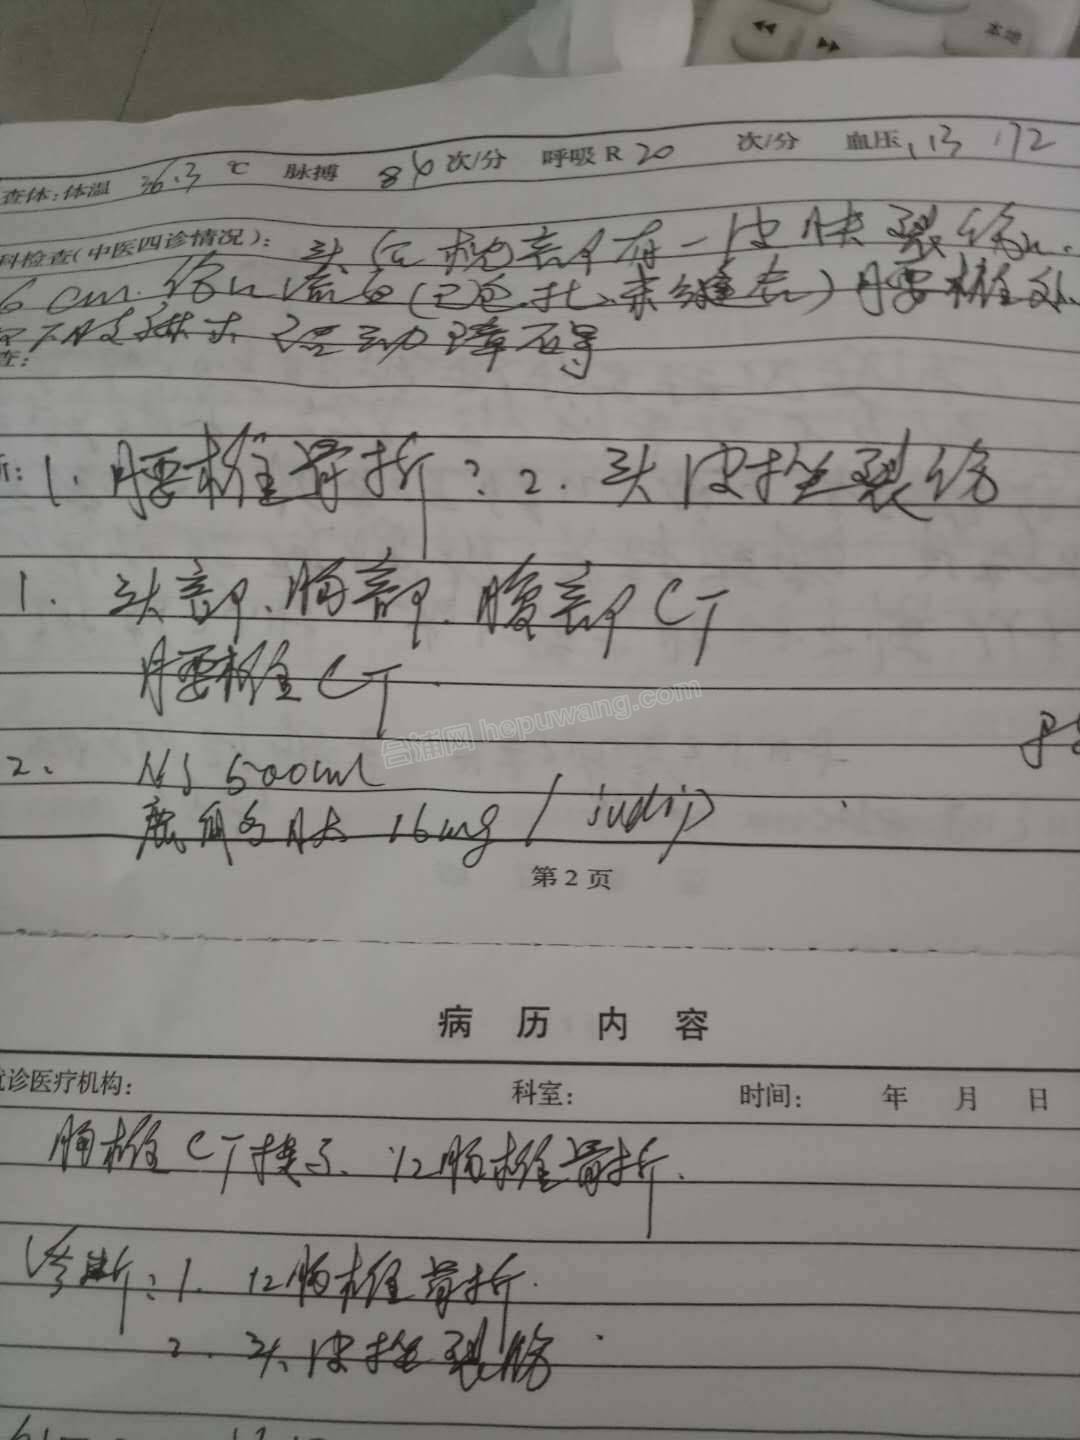 本地
查体:体温 36.3 ℃ 脉搏 86 次/分 呼吸R 20 次/分 血压 113 /72
科检查(中医四诊情况): 头 枕部有一皮肤裂伤
6cm.伤口 (已包扎.未缝合) 腰椎
下肢 活动障碍
查:
断: 1. 腰椎骨折? 2. 头皮挫裂伤
1. 头部、胸部、腹部CT
腰椎CT.
合浦网 hepuwang.com
2. NS 500ml
16mg / ivdrip
第2页
病历内容
就诊医疗机构: 科室: 时间: 年 月 日
胸椎CT提示、12胸椎骨折.
诊断:1. 12胸椎骨折.
2. 头皮挫裂伤.